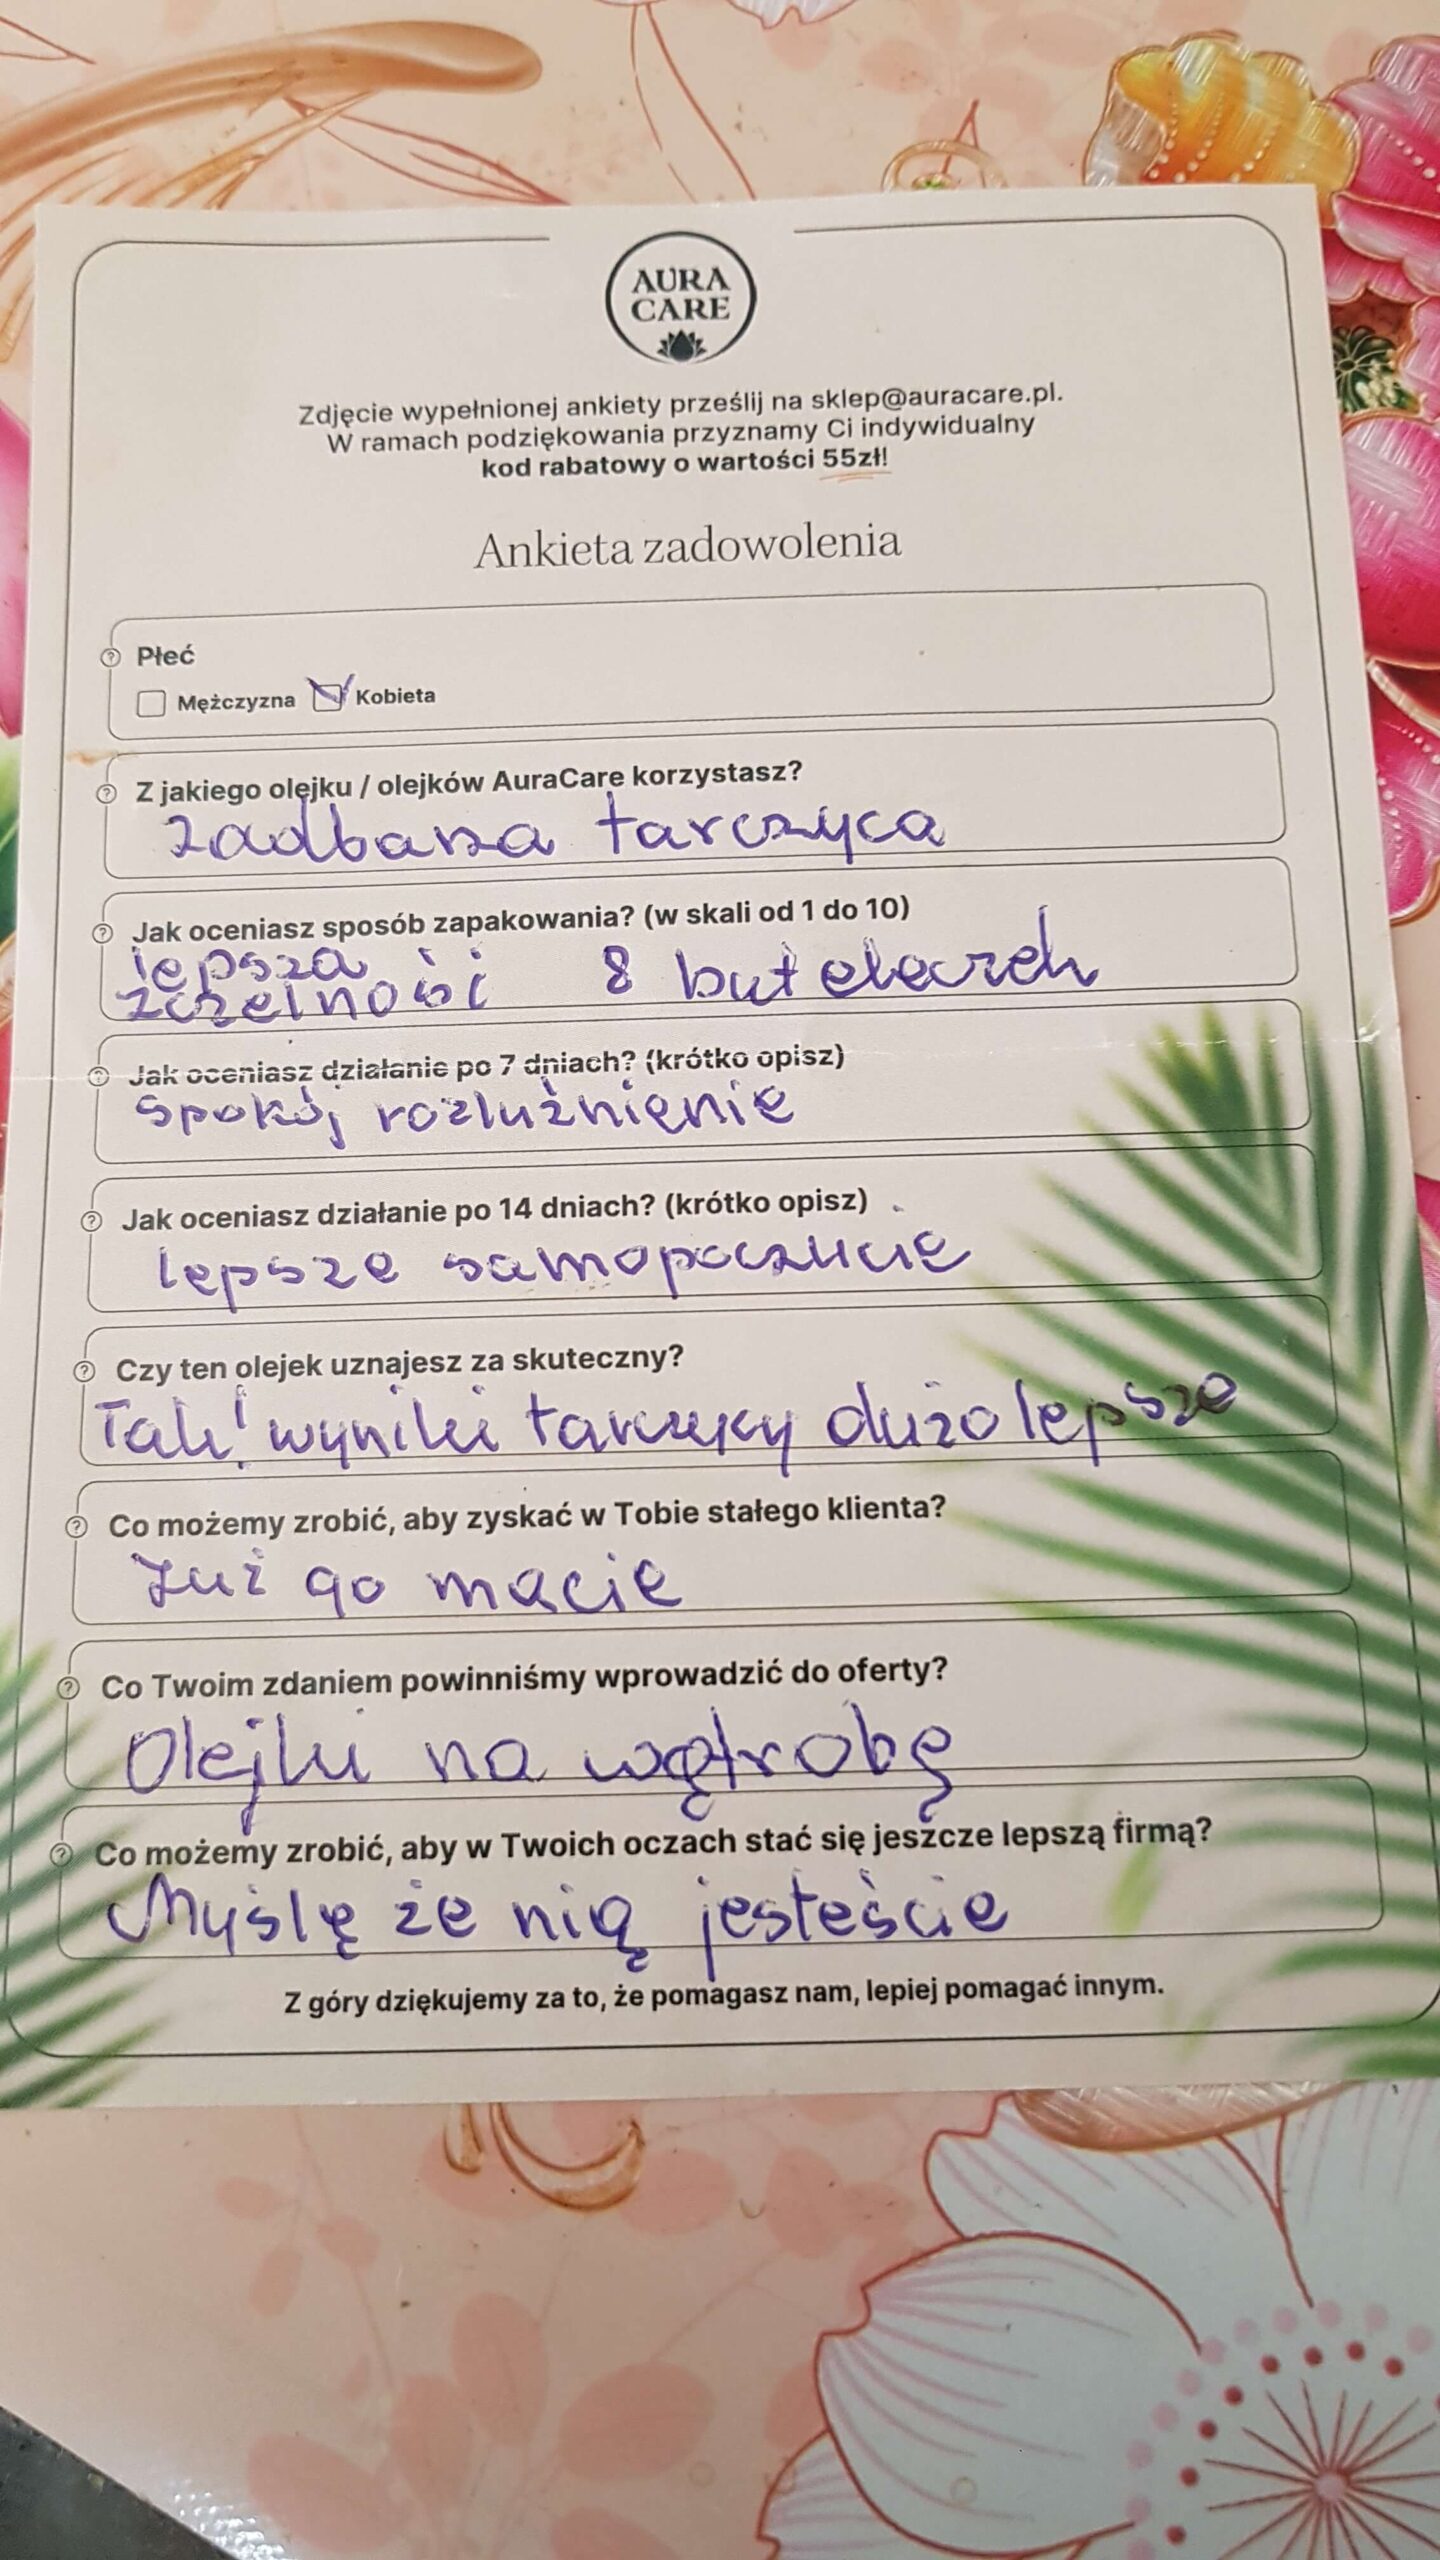 AURA
CARE
Zdjęcie wypełnionej ankiety prześlij na sklep@auracare.pl.
W ramach podziękowania przyznamy Ci indywidualny
kod rabatowy o wartości 55zł!
Ankieta zadowolenia
Płeć
Mężczyzna Kobieta
Z jakiego olejku / olejków AuraCare korzystasz?
zadbana tarczyca
Jak oceniasz sposób zapakowania? (w skali od 1 do 10)
lepsza
zczelność 8 buteleczek
Jak oceniasz działanie po 7 dniach? (krótko opisz)
Spokój rozluźnienie
Jak oceniasz działanie po 14 dniach? (krótko opisz)
lepsze samopoczucie
Czy ten olejek uznajesz za skuteczny?
Tak! wyniki tarczycy dużo lepsze
Co możemy zrobić, aby zyskać w Tobie stałego klienta?
Już go macie
Co Twoim zdaniem powinniśmy wprowadzić do oferty?
Olejki na wątrobę
Co możemy zrobić, aby w Twoich oczach stać się jeszcze lepszą firmą?
Myślę że nią jesteście
Z góry dziękujemy za to, że pomagasz nam, lepiej pomagać innym.